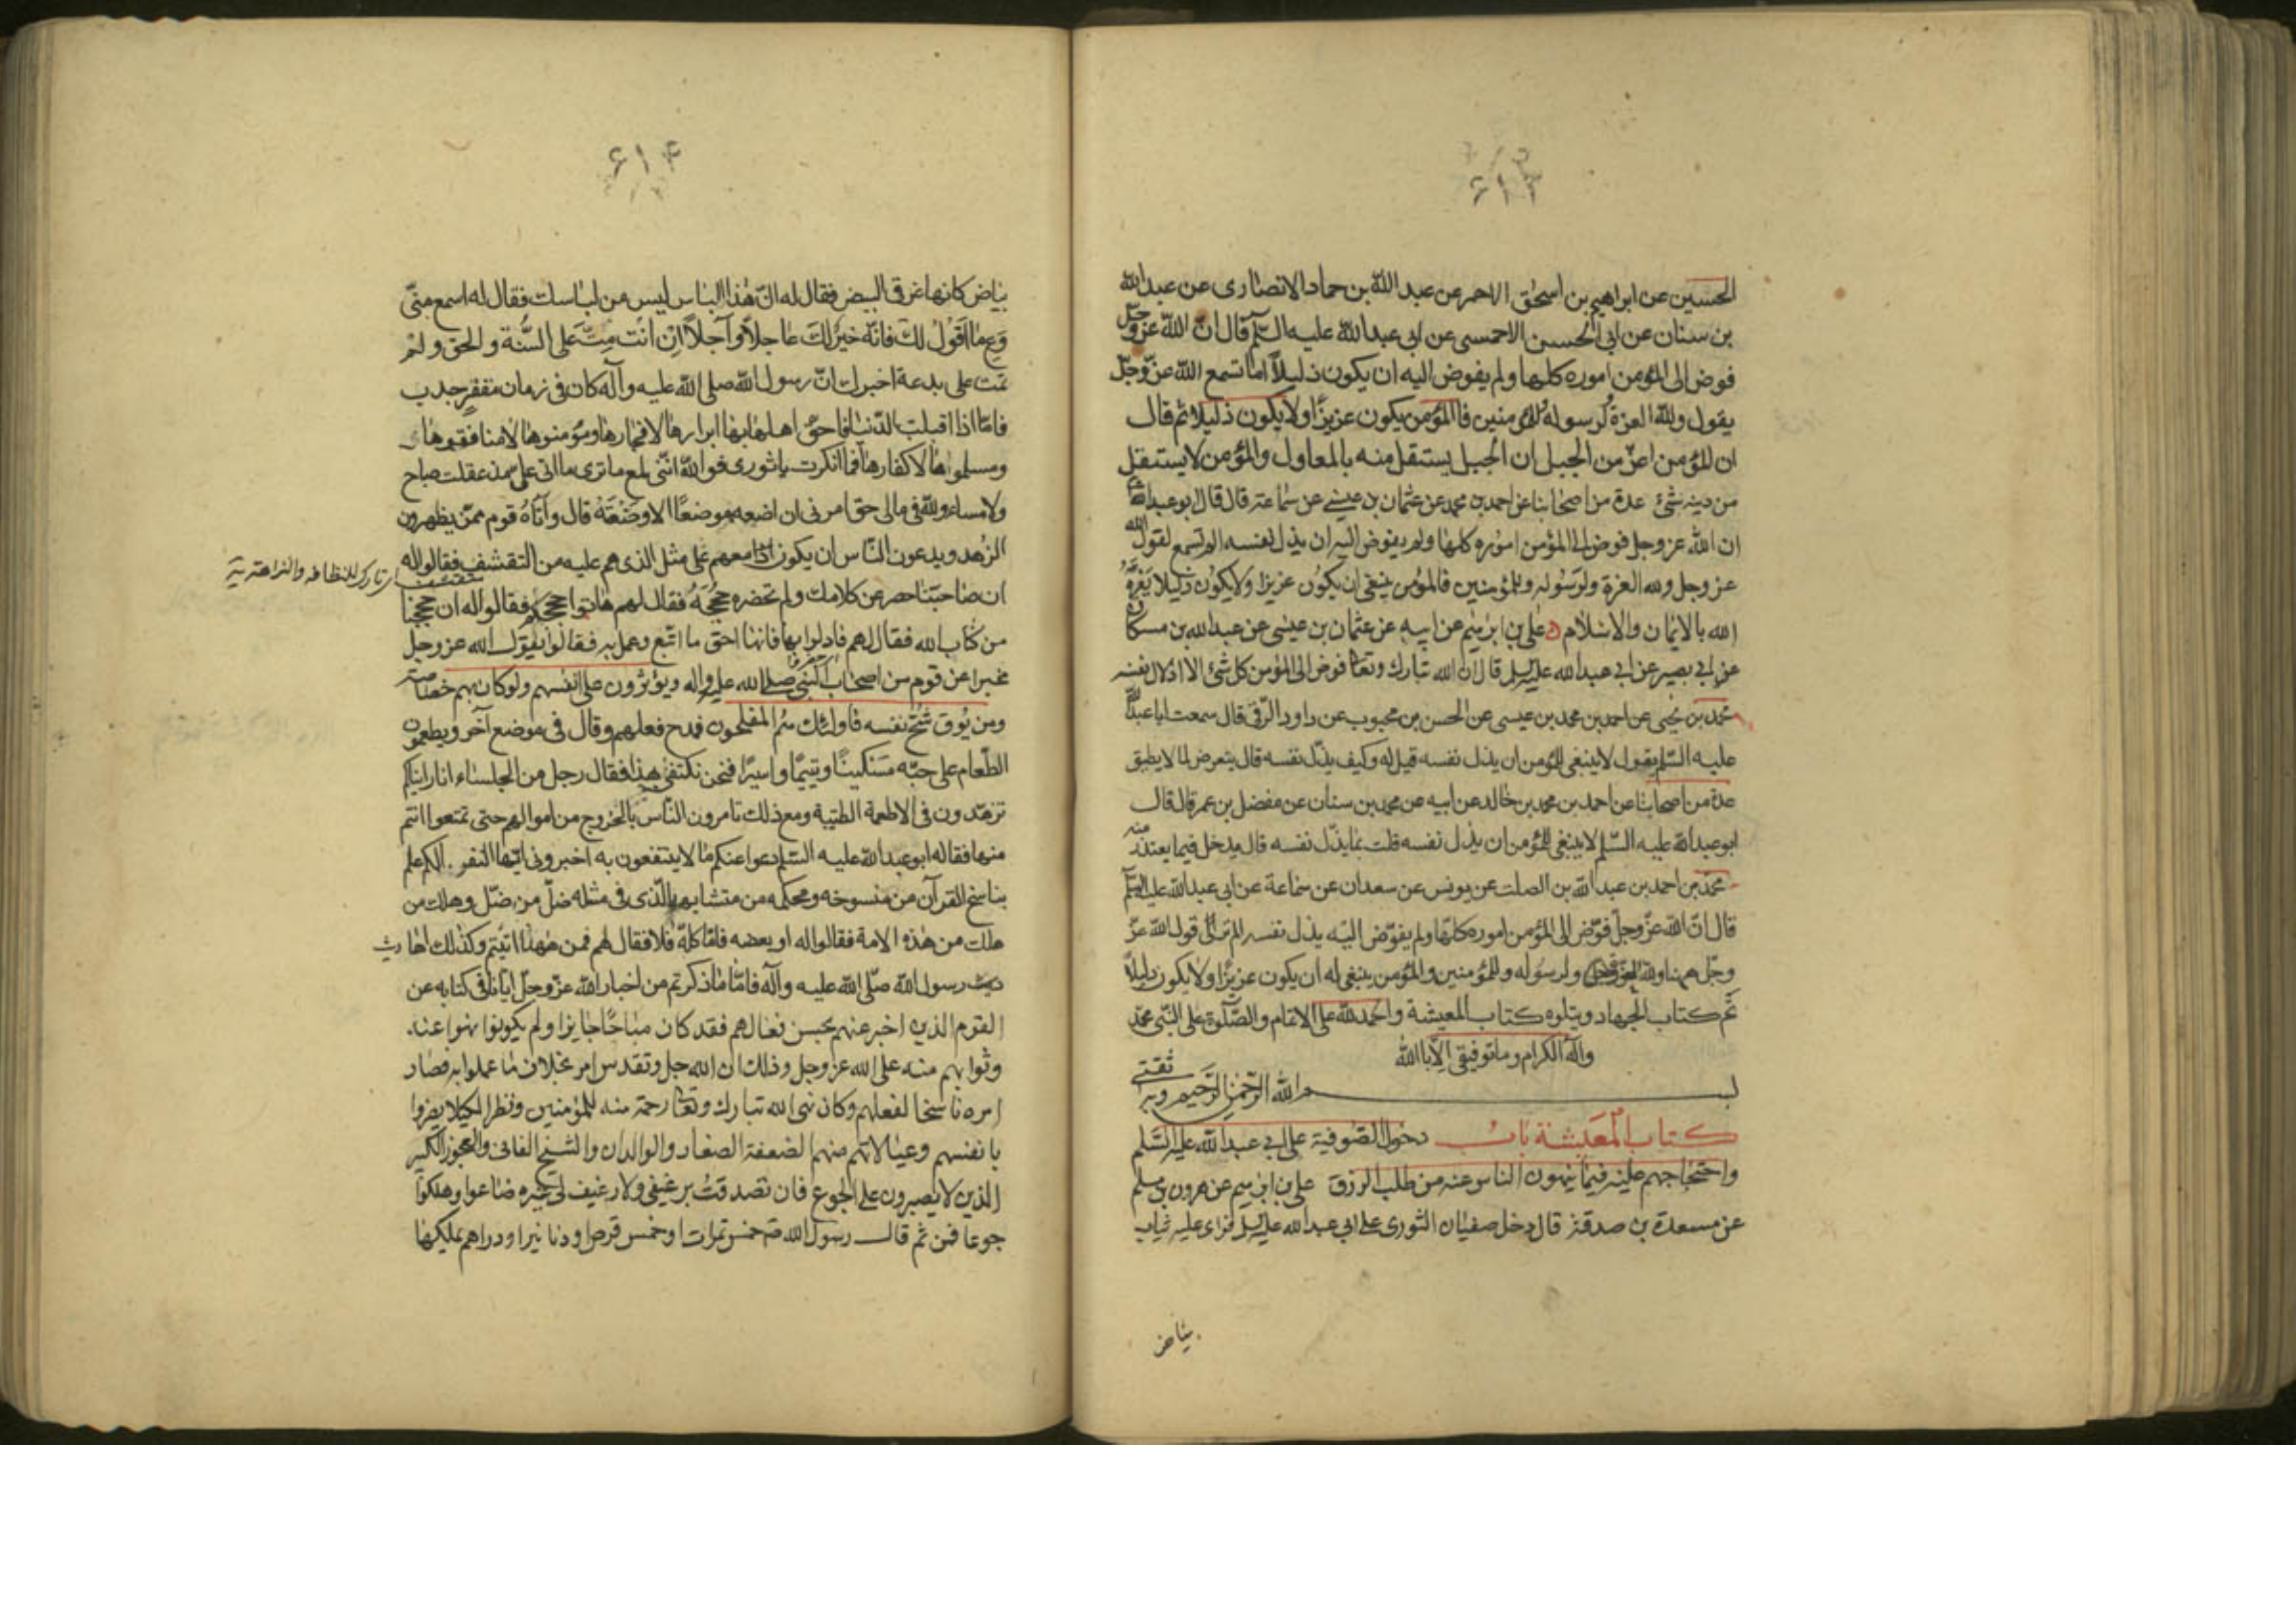 ۶۱۳
الحسين عن ابراهيم بن اسحق الاحمر عن عبد الله بن حماد الانصارى عن عبد الله
بن سنان عن ابى الحسن الاحمسى عن ابى عبد الله عليه السلم قال ان الله عز وجل
فوض الى المؤمن اموره كلها ولم يفوض اليه ان يكون ذليلاً اما تسمع الله عز وجل
يقول ولله العزة لرسوله للمؤمنين فاالمؤمن يكون عزيزًا ولا يكون ذليلا ثم قال
ان المؤمن اعز من الجبل ان الجبل يستقل منه بالمعاول والمؤمن لا يستقل
من دينه شئ عدة من اصحابنا عن احمد بن محمد عن عثمان بن عيسى عن سماعة قال قال ابو عبد الله
ان الله عز وجل فوض الى المؤمن اموره كلها ولم يفوض اليه ان يذل نفسه الم تسمع لقول الله
عز وجل ولله العزة ولرسوله وللمؤمنين فالمؤمن ينبغى ان يكون عزيزا ولا يكون ذليلا يعزه
الله بالايمان والاسلام على بن ابرهيم عن ابيه عن عثمان بن عيسى عن عبد الله بن مسكان
عن ابي بصير عن ابي عبد الله قال ان الله تبارك وتعا فوض الى المؤمن كل شئ الا اذلال نفسه
محمد بن يحيى عن احمد بن محمد بن عيسى عن الحسن بن محبوب عن داود الرقى قال سمعت ابا عبد الله
عليه السلم يقول لا ينبغى للمؤمن ان يذل نفسه قيل له وكيف يذل نفسه قال يتعرض لما لا يطيق
عدة من اصحابنا عن احمد بن محمد بن خالد عن ابيه عن محمد بن سنان عن مفضل بن عمر قال قال
ابو عبد الله عليه السلم لا ينبغى للمؤمن ان يذل نفسه قلت بما يذل نفسه قال يدخل فيما يعتذر منه
محمد بن احمد بن عبد الله بن الصلت عن يونس عن سعدان عن سماعة عن ابى عبد الله عليه السلم
قال ان الله عز وجل فوض الى المؤمن اموره كلها ولم يفوض اليه يذل نفسه الم تر الى قول الله عز
وجل ههنا ولله العزة ولرسوله وللمؤمنين والمؤمن ينبغى له ان يكون عزيزًا ولا يكون ذليلاً
تم كتاب الجهاد ويتلوه كتاب المعيشة والحمد لله على الاتمام والصلوة على النبى محمد
وآله الكرام وما توفيقى الا با الله
بسم الله الرحمن الرحيم وبه ثقتى
كتاب المعيشة باب دخول الصوفية على ابي عبد الله عليه السلم
واحتجاجهم عليه فيما ينهون الناس عنه من طلب الرزق على بن ابرهيم عن هرون بن مسلم
عن مسعدة بن صدقة قال دخل سفيان الثورى على ابي عبد الله فراى عليه ثياب
بياض
۶۱۴
بياض كانها غرقى البيض فقال له ان هذا الباس ليس من لباسك فقال له اسمع منى
وع ما اقول لك فانه خير لك عاجلاً وآجلاً ان انت مت على السنة والحق ولم
تمت على بدعة اخبرك ان رسول الله صلى الله عليه وآله كان فى زمان مقفر جدب
فاما اذا اقبلت الدنيا فاحق اهلها بها ابرارها لا فجارها ومؤمنوها لا منافقوها
ومسلموها لا كفارها فما انكرت يا ثورى فو الله اننى لمع ما ترى ما اتى على مذ عقلت صباح
ولا مساء ولله فى مالى حق امرنى ان اضعه موضعًا الا وضعته قال وأتاه قوم ممن يظهرون
الزهد ويدعون الناس ان يكونوا معهم على مثل الذى هم عليه من التقشف فقالوا له
متقشف اى تارك للنظافه والنزاهة
ان صاحبنا حصر عن كلامك ولم تحضره حججه فقال لهم هاتوا حججكم فقالوا له ان حججنا
من كتاب الله فقال لهم فادلوا بها فانها احق ما اتبع وعمل به فقالوا يقول الله عز وجل
مخبرا عن قوم من اصحاب النبى صلى الله عليه واله ويؤثرون على انفسهم ولو كان بهم خصاصة
ومن يوق شح نفسه فاولئك هم المفلحون فمدح فعلهم وقال فى موضع آخر ويطعمون
الطعام على حبه مسكينًا ويتيمًا واسيرًا فنحن نكتفى بهذا فقال رجل من الجلساء انا رايناكم
تزهدون فى الاطعمة الطيبة ومع ذلك تامرون الناس بالخروج من اموالهم حتى تمتعوا انتم
منها فقال له ابو عبد الله عليه السلم دعوا عنكم ما لا ينتفعون به اخبرونى ايها النفر الكم علم
بناسخ القرآن من منسوخه ومحكمه من متشابهه الذى فى مثله ضل من ضل وهلك من
هلك من هذه الامة فقالوا له او بعضه فاما كله فلا فقال لهم فمن ههنا اتيتم وكذلك احا ديث
ديث رسول الله صلى الله عليه وآله فاما ما ذكرتم من اخبار الله عز وجل ايانا فى كتابه عن
القوم الذين اخبر عنهم بحسن فعالهم فقد كان مباحًا جايزا ولم يكونوا نهوا عنه
وثوابهم منه على الله عز وجل وذلك ان الله جل وتقدس امر بخلاف ما عملوا به فصار
امره ناسخا لفعلهم وكان نهى الله تبارك وتعا رحمة منه للمؤمنين ونظرا لكيلا يضروا
بانفسهم وعيالاتهم منهم الضعفة الصغار والولدان والشيخ الفانى والعجوز الكبير
الذين لا يصبرون على الجوع فان تصدقت برغيفى ولا رغيف لى غيره ضاعوا وهلكوا
جوعا فمن ثم قال رسول الله خمس تمرات او خمس قرص او دنانير او دراهم يملكها